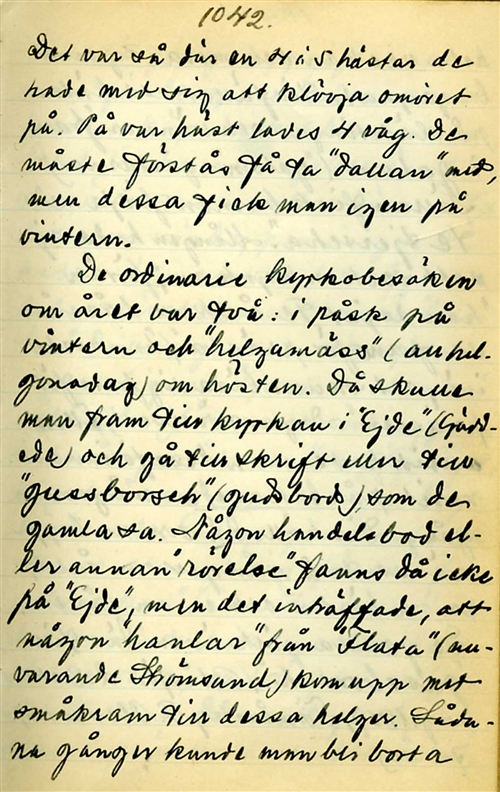 1042.
Det var så där en 4 à 5 hästar de
hade med sig att klövja omöret
på. På var häst lades 4 våg. De
måste förstås få ta "dallan" med,
men dessa fick man igen på
vintern.
De ordinarie kyrkobesöken
om året var två: i påsk på
vintern och "helgamäss" (allhel-
gonadag) om hösten. Då skulle
man fram till kyrkan i "Ejde" (Gädd-
ede) och gå till skrift eller till
"guessborsch" (gudsbords), som de
gamla sa. Någon handelsbod el-
ler annan "rörelse" fanns då icke
på "Ejde", men det inträffade, att
någon "hanlar" från "Flata" (nu-
varande Strömsund) kom upp med
småkram till dessa helger. Såda-
na gånger kunde man bli borta